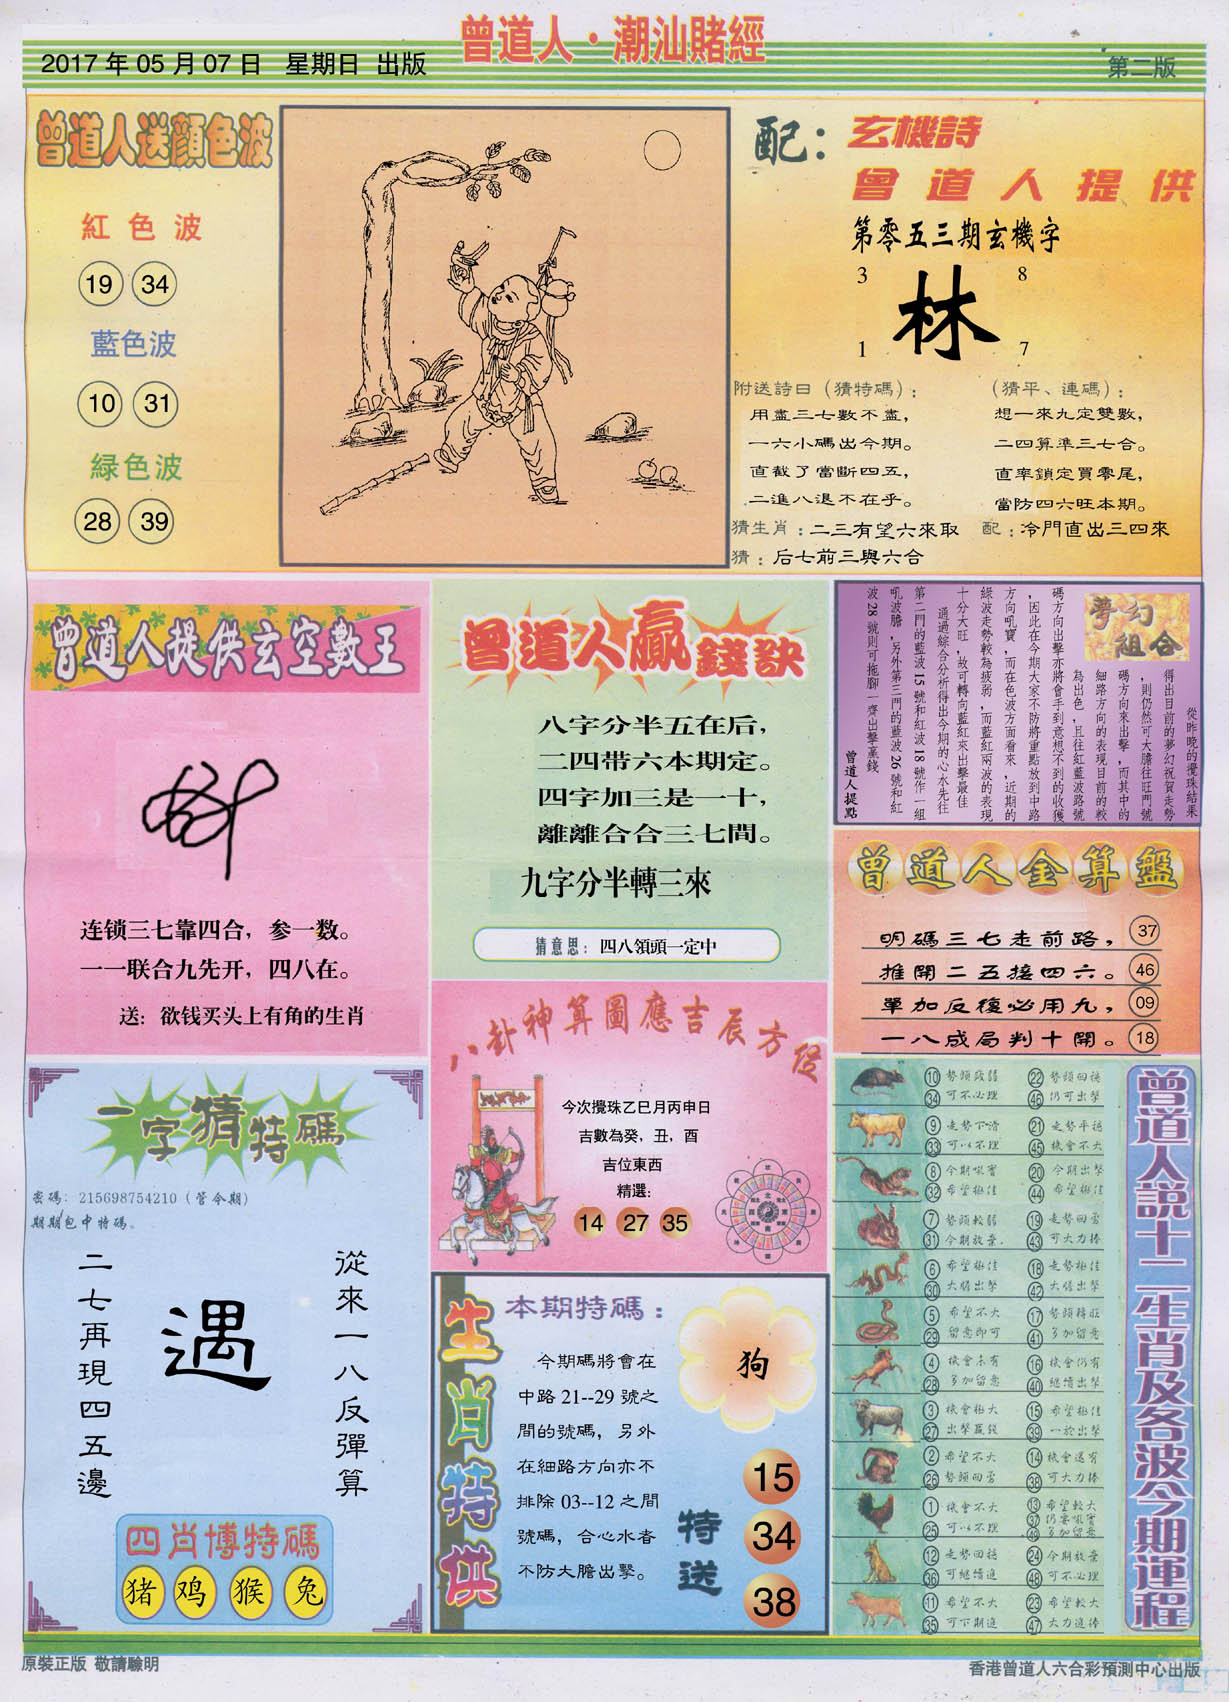 曾道人·潮汕賭經
2017年05月07日 星期日 出版
第二版
曾道人送顔色波
紅色波
19 34
藍色波
10 31
緑色波
28 39
配：玄機詩
曾道人提供
第零五三期玄機字
3 8
林
1 7
附送詩曰（猜特碼）：
用盡三七數不盡，
一六小碼出今期。
直截了當斷四五，
二進八退不在乎。
（猜平、連碼）：
想一來九定雙數，
二四算準三七合。
直率鎖定買零尾，
當防四六旺本期。
猜生肖：二三有望六來取
配：冷門直出三四來
猜：后七前三與六合
曾道人提供玄空數王
连锁三七靠四合，参一数。
一一联合九先开，四八在。
送：欲钱买头上有角的生肖
曾道人贏錢訣
八字分半五在后，
二四带六本期定。
四字加三是一十，
離離合合三七間。
九字分半轉三來
猜意思：四八領頭一定中
夢幻
組合
從昨晚的攪珠結果
得出目前的夢幻祝賀走勢
，則仍然可大膽往旺門號
碼方向來出擊，而其中的
細路方向的表現目前的較
為出色，且往紅藍波路號
碼方向出擊亦將會手到意想不到的收獲
，因此在今期大家不防將重點放到中路
方向吼寶，而在色波方面看來，近期的
綠波走勢較為疲弱，而藍紅兩波的表現
十分大旺，故可轉向藍紅來出擊最佳
通過綜合分析得出今期的心水先往
第二門的藍波15號和紅波18號作一組
吼波膽，另外第三門的藍波26號和紅
波28號則可拖腳一齊出擊贏錢
曾道人提點
曾道人金算盤
明碼三七走前路， 37
推開二五接四六。 46
單加反後必用九， 09
一八成局判十開。 18
八卦神算圖應吉辰方位
今次攪珠乙巳月丙申日
吉數為癸，丑，酉
吉位東西
精選：
14 27 35
一字猜特碼
密碼：215698754210（管令期）
期期包中特碼。
從來一八反彈算
遇
二七再現四五邊
四肖博特碼
猪 鸡 猴 兔
生肖特供
本期特碼：
狗
今期碼將會在
中路21--29號之
間的號碼，另外
在細路方向亦不
排除03--12之間
號碼，合心水者
不防大膽出擊。
特送
15
34
38
曾道人説十二生肖及各波今期運程
10 勢頭疲弱 22 勢頭回穩
34 可不必理 46 仍可出擊
9 走勢下滑 21 走勢平穩
33 可以不理 45 機會不大
8 今期吼寶 20 今期出擊
32 希望極佳 44 希望極佳
7 勢頭較弱 19 走勢回雲
31 今期放棄 43 可大力捧
6 希望極佳 18 走勢極佳
30 大膽出擊 42 大膽出擊
5 希望不大 17 勢頭轉旺
29 留意即可 41 多加留意
4 機會未有 16 機會仍有
28 多加留意 40 繼續出擊
3 機會極大 15 希望極佳
27 出擊贏錢 39 一於出擊
2 希望不大 14 機會還有
26 勢頭回雲 38 可大力捧
1 機會不大 13 希望較大
25 可以不理 37 仍要吼寶
49 多加留意
12 走勢回穩 24 今期放棄
36 可繼續追 48 可不必理
11 希望不大 23 希望較大
35 可下期追 47 大力追捧
原裝正版 敬請驗明
香港曾道人六合彩預測中心出版